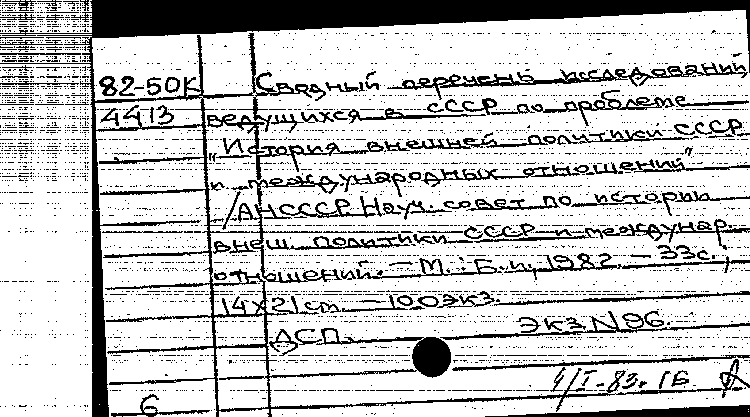 82-50К Сводный перечень исследований
4413 ведущихся в СССР по проблеме
"История внешней политики СССР
и международных отношений"
/АНСССР. Науч. совет по истории
внеш. политики СССР и междунар.
отношений. — М.: Б.и., 1982. — 33с.;
14х21 см. — 100экз.
ДСП. Экз N 96.
4/I-83. 1Б
6